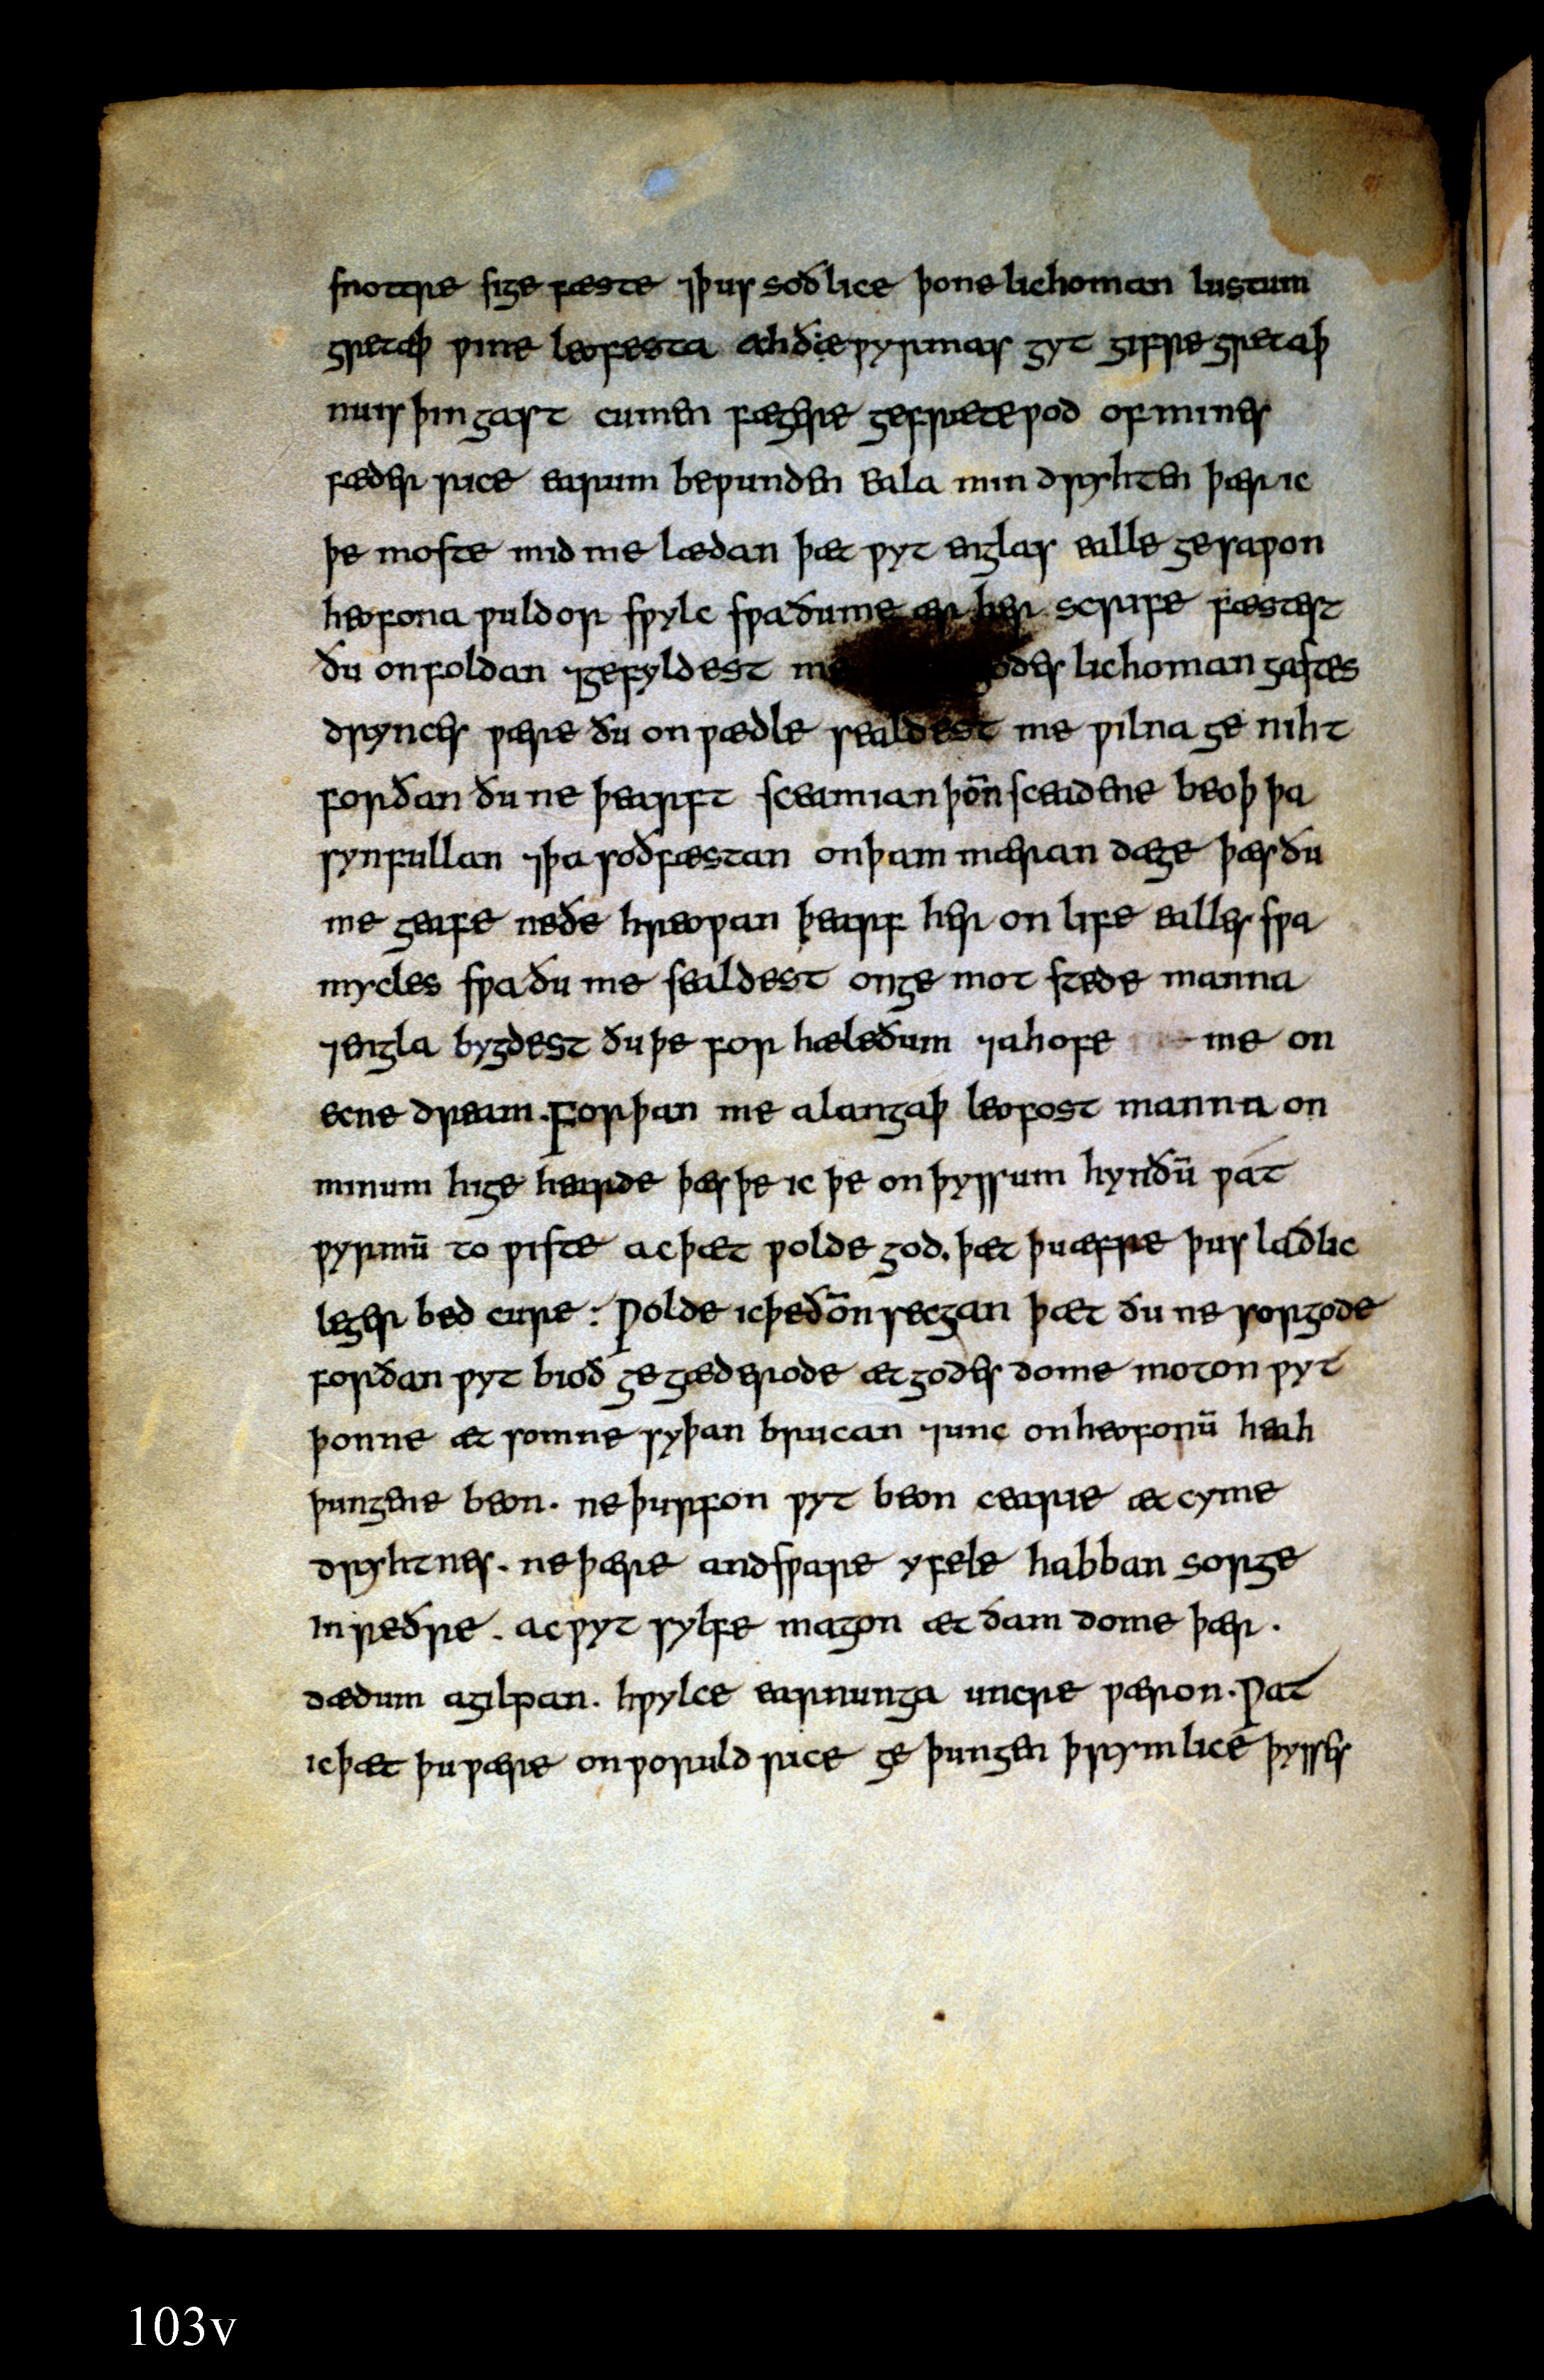 snottre sige fæste ⁊þus soðlice þone lichoman lustum
gretaþ ƿine leofesta ah ðe ƿyrmas gyt gifre gretaþ
nuis þin gast cumen fægere gefrætewod of mines
fæder rice earum beƿunden eala min dryhten þær ic
þe moste mid me lædan þæt ƿyt englas ealle gesaƿon
heofona ƿuldor sƿylc sƿa ðume ær her scrife fæstest
ðu on foldan ⁊gefyldest me godes lichoman gastes
drynces ƿære ðu on ƿædle sealdest me ƿilna ge niht
forðan ðu ne þearft sceamian þoñ sceadene beoþ þa
synfullan ⁊þa soðfæstan onþam mæran dæge þæs ðu
me geafe ne ðe hreoƿan þearf her on life ealles sƿa
mycles sƿa ðu me sealdest onge mot stede manna
⁊engla bygdest ðu þe for hæleðum ⁊ahofe me on
ecne dream. Forþan me a langaþ leofost manna on
minum hige hearde þæs þe ic þe on þyssum hynðū ƿat
ƿyrmū to ƿiste ac þæt ƿolde god. þæt þu æfre þus laðlic
leger bed cure : Ƿolde ic þe ðoñ secgan þæt ðu ne sorgode
forðan ƿyt bioð ge gæderode æt godes dome moton ƿyt
þonne æt somne syþan brucan ⁊unc on heofonū heah
þungene beon. ne þurfon ƿyt beon cearie æt cyme
dryhtnes. ne þære andsƿare yfele habban sorge
in reðre. ac ƿyt sylfe magon æt ðam dome þær.
dædum agilpan. hƿylce earnunga uncre ƿæron. Ƿat
ic þæt þu ƿære on ƿoruld rice ge þungen þrymlice þysses
103v